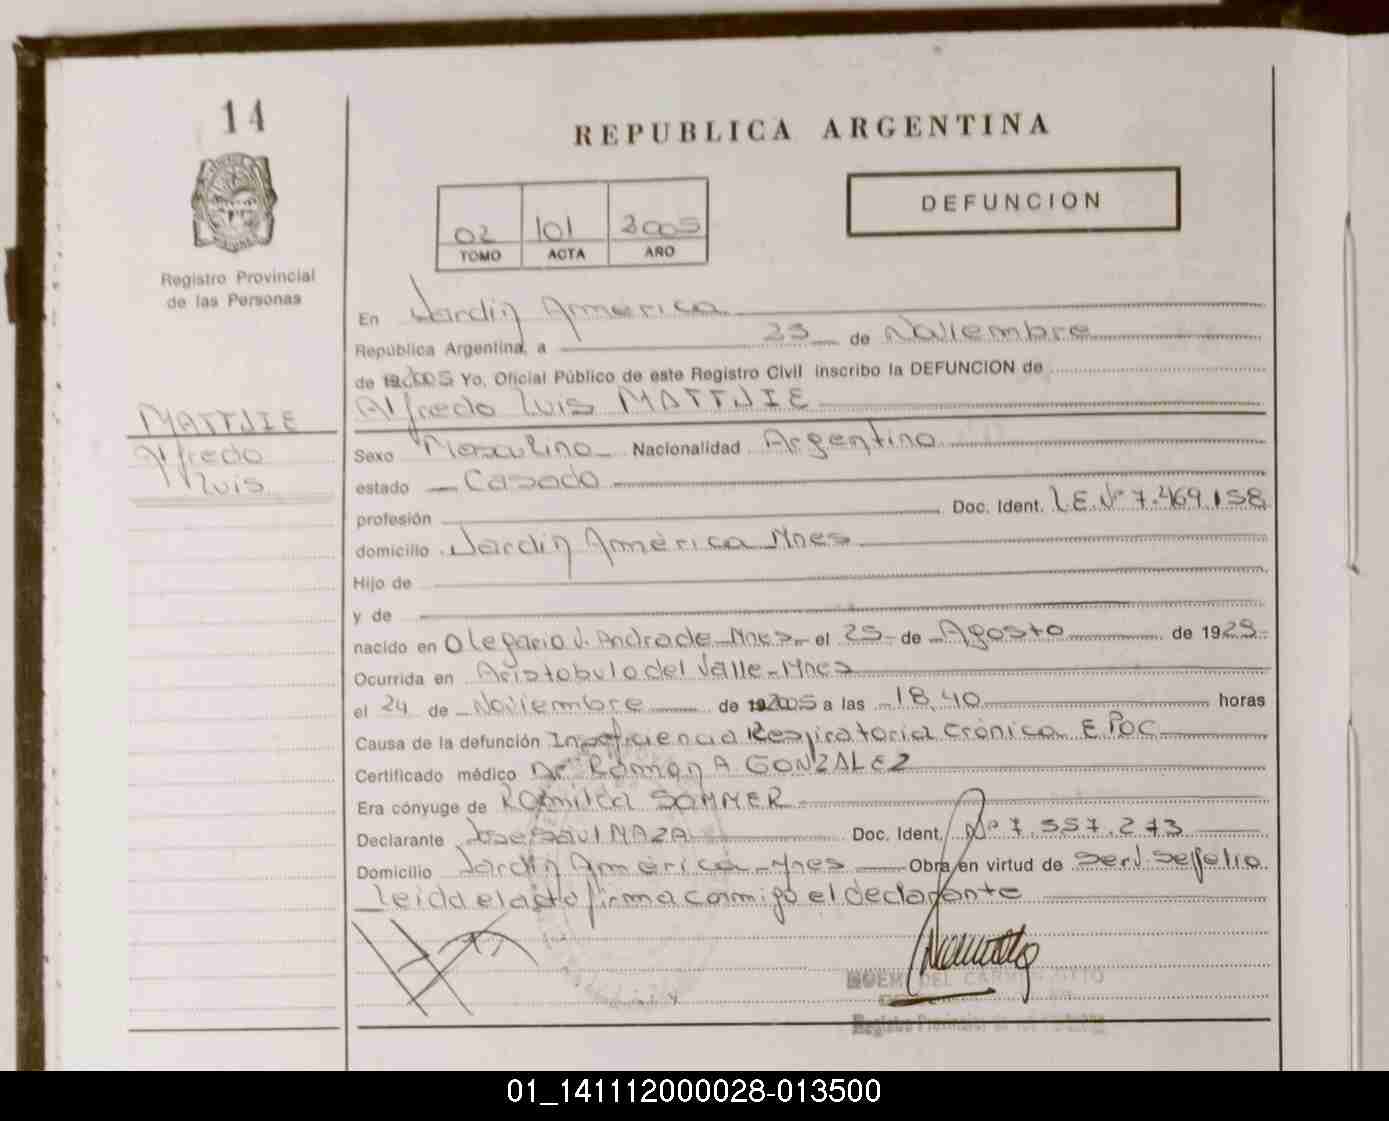 14
REPUBLICA ARGENTINA
DEFUNCION
02 101 2005
TOMO ACTA AÑO
Registro Provincial
de las Personas
En Jardín América
República Argentina, a 25 de Noviembre
de 2005 Yo, Oficial Público de este Registro Civil inscribo la DEFUNCION de
Alfredo Luis MATTJIE
MATTJIE
Alfredo
Luis
Sexo Masculino Nacionalidad Argentino
estado Casado
profesión Doc. Ident. L.E. Nº 7.469.158
domicilio Jardín América Mnes
Hijo de
y de
nacido en Olegario V. Andrade Mnes el 25 de Agosto de 1929
Ocurrida en Aristobulo del Valle - Mnes
el 24 de Noviembre de 2005 a las 18,40 horas
Causa de la defunción Insuficiencia Respiratoria Crónica EPOC
Certificado médico Dr Román A GONZALEZ
Era cónyuge de Romilda SOMMER
Declarante José Saúl MAZA Doc. Ident. Nº 7.557.273
Domicilio Jardín América - Mnes Obra en virtud de Serv. Sepelio
Leida el acta firma conmigo el declarante
DEL CARMEN
Registro Provincial de las
01_141112000028-013500